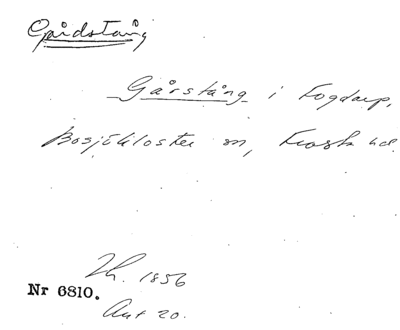 Gårdstång
Gårstång i Fogdarp,
Bosjökloster sn, Frosta hd.
Th. 1856
Nr 6810.
Aut 20.